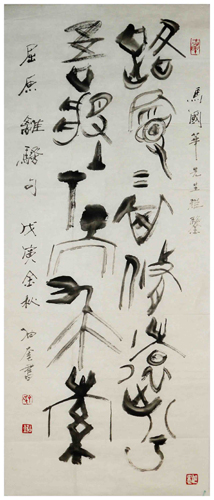 馬國華先生雅鑒
路曼曼其修遠兮
吾將上下而求索
屈原離騷句戊寅金秋